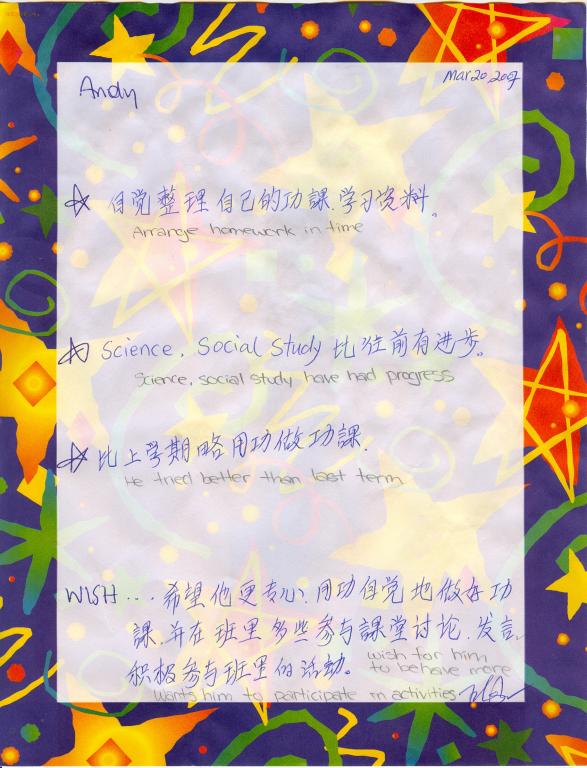 Andy
Mar 20 2007
☆ 自觉整理自己的功課.学习资料。
Arrange homework in time
☆ Science, Social Study 比往前有进步。
Science, social study have had progress
☆ 比上学期略用功做功課.
He tried better than last term
WISH ... 希望他更专心、用功自觉地做好功
課.并在班里多些参与課堂讨论.发言,
积极参与班里的活动。
wish for him
to behave more
wants him to participate in activities